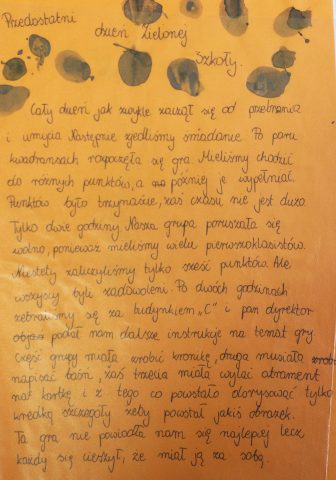 Przedostatni
dzień Zielonej
Szkoły.
Cały dzień jak zwykle zaczął się od przebrania
i umycia. Następnie zjedliśmy śniadanie. Po paru
kwadransach rozpoczęła się gra. Mieliśmy chodzić
do różnych punktów, a później je wypełniać.
Punktów było trzynaście, zaś czasu nie jest dużo
Tylko dwie godziny. Nasza grupa poruszała się
wolno, ponieważ mieliśmy wielu pierwszoklasistów.
Niestety zaliczyliśmy tylko sześć punktów. Ale
wszyscy byli zadowoleni. Po dwóch godzinach
zebraliśmy się za budynkiem „C" i pan dyrektor
podał nam dalsze instrukcje na temat gry.
Część grupy miała zrobić kronikę, druga musiała
napisać baśń, zaś trzecia miała wylać atrament
nat kartkę i z tego co powstało dorysować tylko
kredką szczegóły żeby powstał jakiś obrazek.
Ta gra nie powiodła nam się najlepiej lecz
każdy się cieszył, że miał ją za sobą.